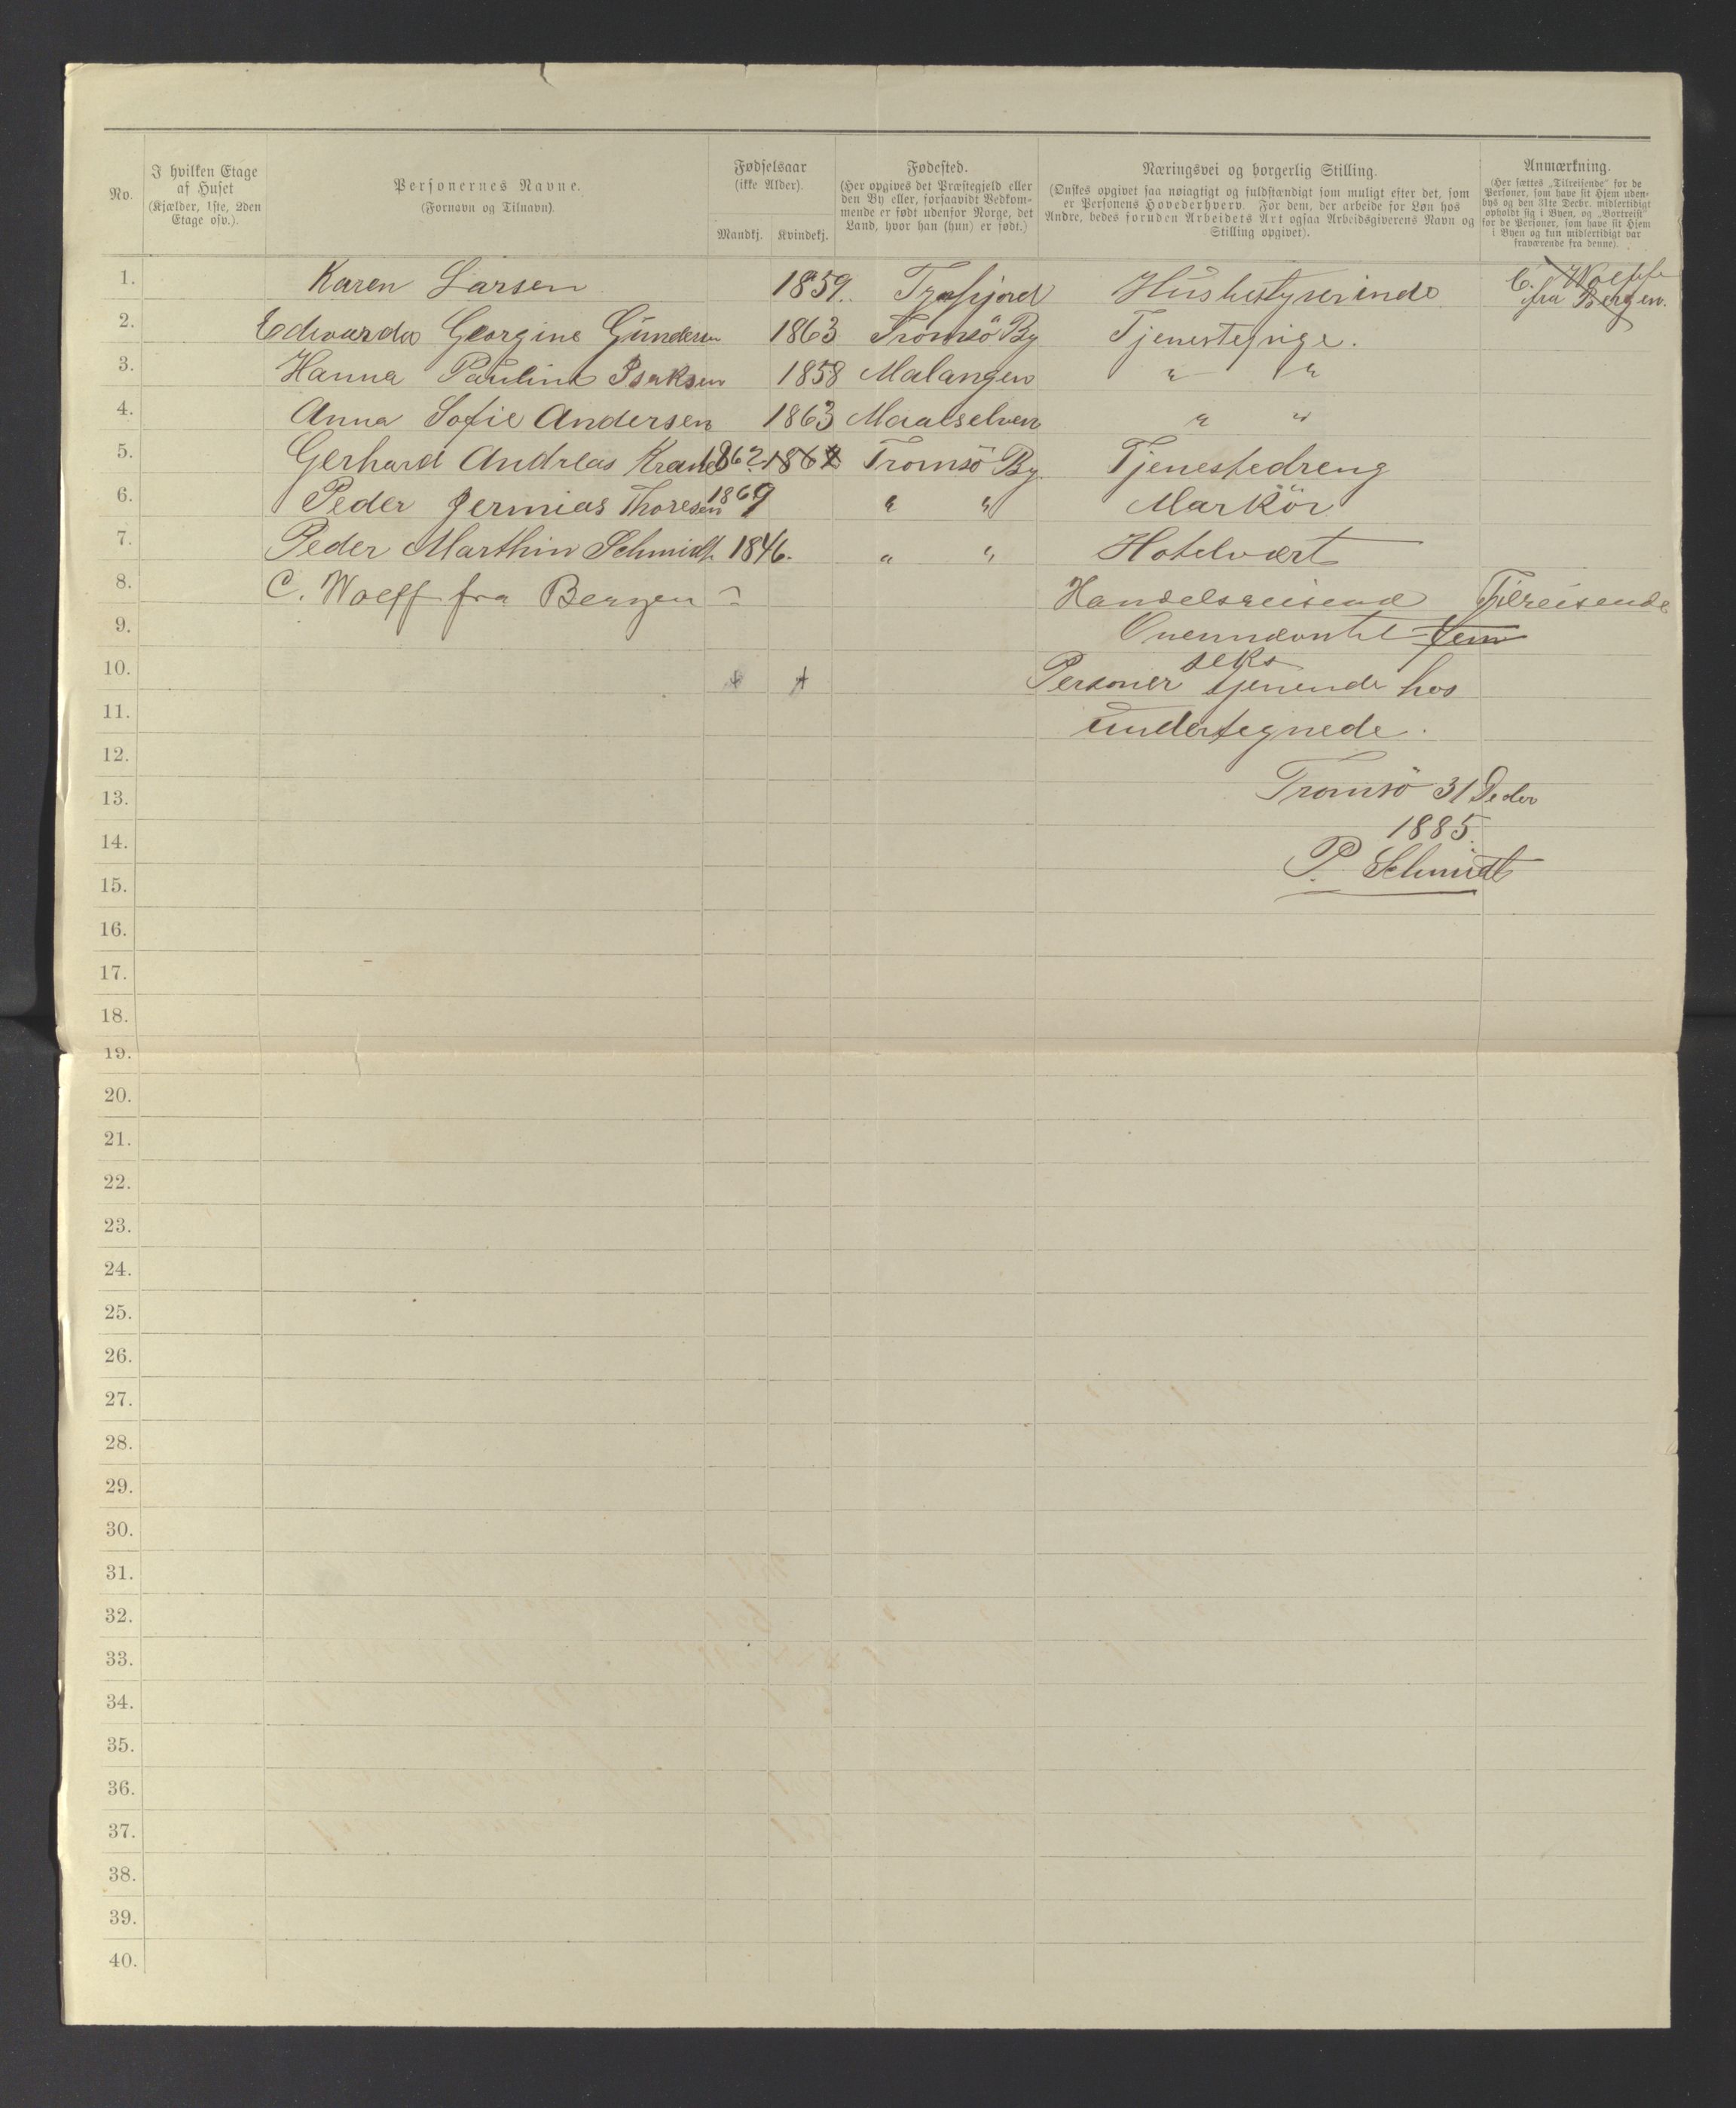 No.
I hvilken Etage
af Huset
(Kjælder, 1ste, 2den
Etage osv.).
Personernes Navne.
(Fornavn og Tilnavn).
Fødselsaar
(ikke Alder).
Mandkj. Kvindekj.
Fødested.
(Her opgives det Præstegjeld eller
den By eller, forsaavidt Vedkom-
mende er født udenfor Norge, det
Land, hvor han (hun) er født.)
Næringsvei og borgerlig Stilling.
(Ønskes opgivet saa nøiagtigt og fuldstændigt som muligt efter det, som
er Personens Hovederhverv. For dem, der arbeide for Løn hos
Andre, bedes foruden Arbeidets Art ogsaa Arbeidsgiverens Navn og
Stilling opgivet).
Anmærkning.
(Her sættes „Tilreisende" for de
Personer, som have sit Hjem uden-
bys og den 31te Decbr. midlertidigt
opholdt sig i Byen, og „Bortreist"
for de Personer, som have sit Hjem
i Byen og kun midlertidigt var
fraværende fra denne).
1. Karen Larsen 1859. Husbestyrerinde C. Woelffe
fra Bergen.
2. Edvarda Georgine Gundersen 1863 Tromsö By Tjenestepige.
3. Hanna Pauline Isaksen 1858 Malangen " "
4. Anna Sofie Andersen 1863 Maalselven " "
5. Gerhard Andreas 1862 1862 Tromsö By. Tjenestedreng
6. Peder Jermias Thoresen 1869 " " Markör
7. Peder Marthin Schmidt. 1846. " " Hotelvært
8. C. Woelff fra Bergen ? Handelsreisend Tilreisende
9. Ovennævnte fem
seks
10. Personer tjenende hos
11. undertegnede.
12.
13. Tromsö 31 Decbr
14. 1885.
15. P. Schmidt
16.
17.
18.
19.
20.
21.
22.
23.
24.
25.
26.
27.
28.
29.
30.
31.
32.
33.
34.
35.
36.
37.
38.
39.
40.